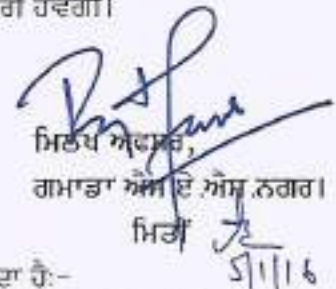 ਹੋਵੇਗੀ।
ਮਿਲਖ ਅਫਸਰ,
ਗਮਾਡਾ ਐਸ.ਏ.ਐਸ.ਨਗਰ।
ਮਿਤੀ
5/1/16
ਦਾ ਹੈ:-